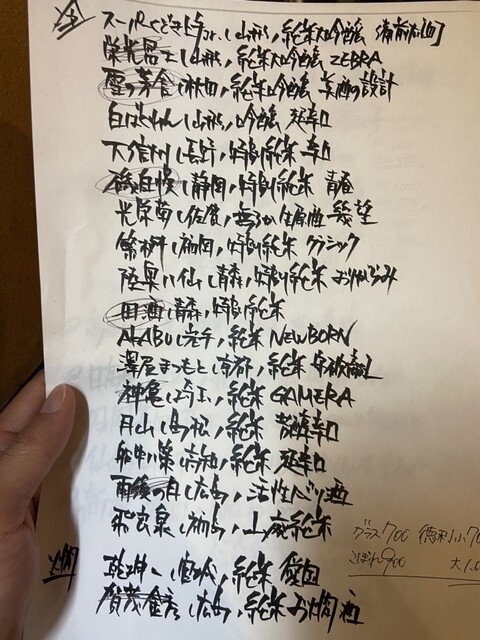 冷 スーパーくどき上手Jr. (山形) 純米大吟醸 備前雄町
栄光冨士 (山形) 純米大吟醸 ZEBRA
雪の茅舎 (秋田) 純米吟醸 美酒の設計
白ばくれん (山形) 吟醸 超辛口
下信州 (長野) 特別純米 辛口
(静岡) 特別純米 青春
光栄菊 (佐賀) 無ろか生原酒 幾望
繁桝 (福岡) 特別純米 クラシック
陸奥八仙 (青森) 特別純米 おりがらみ
田酒 (青森) 特別純米
AKABU (岩手) 純米 NEWBORN
澤屋まつもと (京都) 純米 守破離
神亀 (埼玉) 純米 GAMERA
月山 (島根) 純米 芳醇辛口
船中八策 (高知) 純米 超辛口
雨後の月 (広島) 活性にごり酒
飛良泉 (秋田) 山廃純米
燗 乾坤一 (宮城) 純米 愛国
賀茂金秀 (広島) 純米 お燗酒
グラス700 徳利 小70
こぼれ900 大1.0